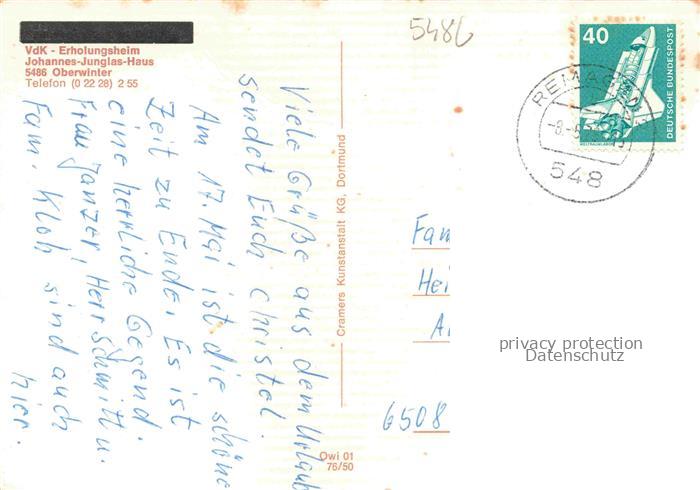 VdK - Erholungsheim
Johannes-Junglas-Haus
5486 Oberwinter
Telefon (0 22 28) 2 55
Viele Grüße aus dem Urlaub
sendet Euch Christel.
Am 17. Mai ist die schöne
Zeit zu Ende. Es ist
eine herrliche Gegend.
Frau Janzer, Herr Schmitt u.
Fam. Kloh sind auch
hier.
Cramers Kunstanstalt KG, Dortmund
Owi 01
76/50
5486
40
DEUTSCHE BUNDESPOST
WELTRAUMLABOR
REMAGEN
548
Fam
Hei
A
6508
privacy protection
Datenschutz